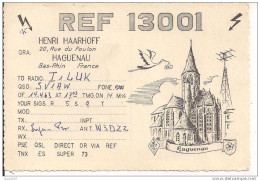 REF 13001
HENRI HAARHOFF
QRA: 20, Rue du Foulon
HAGUENAU
Bas-Rhin France
TO RADIO I1LUK
QSO. SV1AW FONE
OF 14.4.63 AT TMG.ON 14 Mc/s
YOUR SIGS R 5 S 9 T
TX INPT
RX ANT. W3DZZ
MNI
PSE QSL DIRECT OR VIA REF
TNX ES SUPER 73
Haguenau